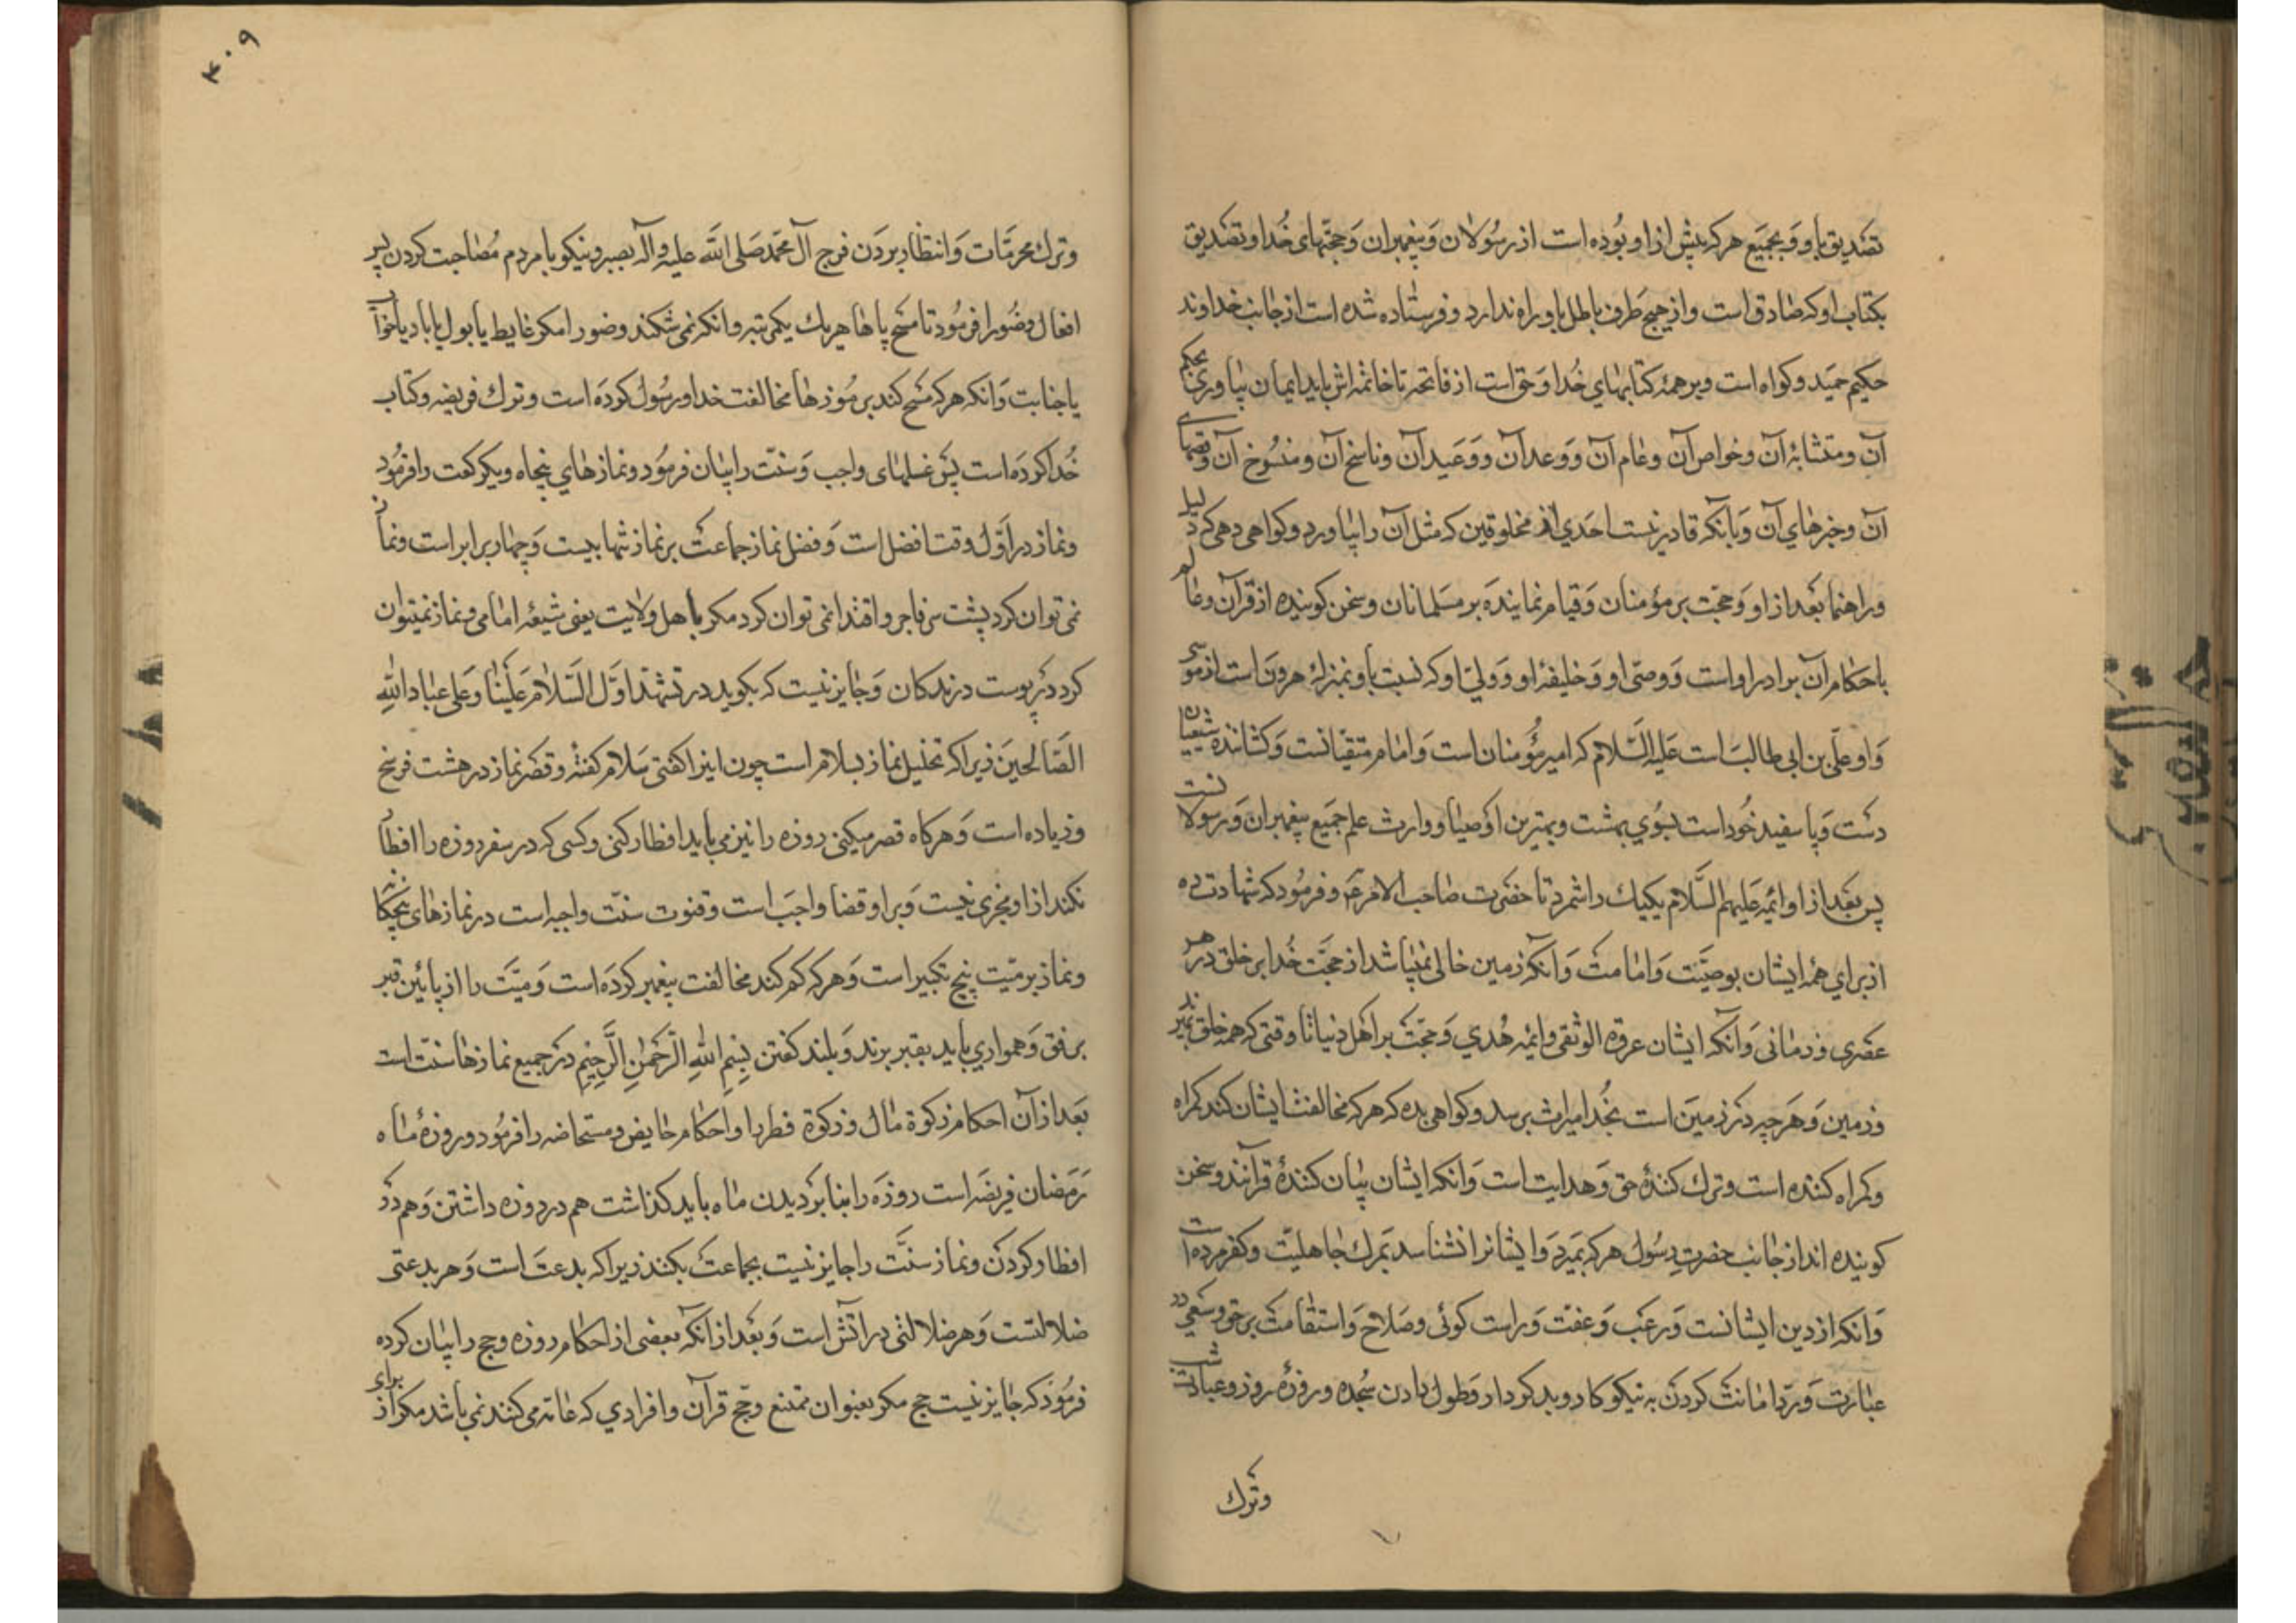 تصدیق باو و بجمیع هرکه پیش از او بوده است از رسولان و پیغمبران و حجتهای خدا و تصدیق
بکتاب او که صادق است و از هیچ طرف باطل باو راه ندارد و فرستاده شده است از جانب خداوند
حکیم حمید و کواه است و بر همۀ کتابهای خدا و حق است از فاتحه تا خاتمه اش باید ایمان بیاوری بمحکم
آن و متشابۀ آن و خواص آن و عام آن و وعد آن و وعید آن و ناسخ آن و منسوخ آن و قصهای
آن و خبرهای آن و بآنکه قادر نیست احدی از مخلوقین که مثل آن را بیاورد و کواهی دهی که دلیل
و راهنما بعد از او و حجت بر مؤمنان و قیام نماینده بر مسلمانان و سخن کوینده از قرآن و عالم
باحکام آن برادر او است و وصی او و خلیفۀ او و ولی او که نسبت باو بمنزلۀ هرون است از موسی
و او علی بن ابی طالب است علیه السلام که امیر مؤمنان است و امام متقیانست و کشانندۀ شیعیان
دست و پا سفید خود است بسوی بهشت و بهترین اوصیا و وارث علم جمیع پیغمبران و رسولانست
پس بعد از او ائمه علیهم السلام یکیک را شمرد تا حضرت صاحب الامر ع و فرمود که شهادت ده
از برای همۀ ایشان بوصیت و امامت و آنکه زمین خالی نمیباشد از حجت خدا بر خلق در هر
عصری و زمانی و آنکه ایشان عروه الوثقی و ائمه هدی و حجت بر اهل دنیا تا وقتی که همه خلق بمیرند
و زمین و هر چه در زمین است بخدا میراث برسد و کواهی بده که هرکه مخالفت ایشان کند کمراه
و کمراه کننده است و ترک کنندۀ حق و هدایت است و آنکه ایشان بیان کنندۀ قرآنند و سخن
کوینده اند از جانب حضرت رسول هرکه بمیرد و ایشانرا نشناسد بمرک جاهلیت و کفر مرده است
و آنکه از دین ایشانست ورع و عفت و راست کوئی و صلاح و استقامت بر حق و سعی در
عبادت و رد امانت کردن به نیکوکار و بدکردار و طول دادن سجده و روزۀ روز و عبادت شب
و ترک
۴۰۹
و ترک محرمات و انتظار بردن فرج آل محمد صلی الله علیه و آله بصبر و نیکو با مردم مصاحبت کردن پس
افعال وضو را فرمود تا مسح پاها هریک یکمرتبه و آنکه نمیشکند وضو را مکر غایط یا بول یا باد یا خواب
یا جنابت و آنکه هرکه مسح کند بر موزها مخالفت خدا و رسول کرده است و ترک فریضه و کتاب
خدا کرده است پس غسلهای واجب و سنت را بیان فرمود و نمازهای پنجاه و یکرکعت را فرمود
و نماز در اول وقت افضل است و فضل نماز جماعت بر نماز تنها بیست و چهار برابر است و نماز
نمی توان کرد پشت سر فاجر و اقتدا نمی توان کرد مکر باهل ولایت یعنی شیعۀ امامی و نماز نمیتوان
کرد در پوست درندکان و جایز نیست که بکوید در تشهد اول السلام علینا و علی عباد الله
الصالحین زیرا که تحلیل نماز بسلام است چون اینرا کفتی سلام کفتۀ و قصر نماز در هشت فرسخ
و زیاده است و هرکاه قصر میکنی روزه را نیز می باید افطار کنی و کسی که در سفر روزه را افطار
نکند از او مجزی نیست و بر او قضا واجب است و قنوت سنت واجبه است در نمازهای پنجکانه
و نماز بر میت پنج تکبیر است و هرکه کم کند مخالفت پیغمبر کرده است و میت را از پائین قبر
برفق و همواری باید بقبر برند و بلند کفتن بسم الله الرحمن الرحیم در جمیع نمازها سنت است
بعد از آن احکام زکوة مال و زکوة فطر را و احکام حایض و مستحاضه را فرمود و روزۀ ماه
رمضان فریضه است روزه را بنا بر دیدن ماه باید کذاشت هم در روزه داشتن و هم در
افطار کردن و نماز سنت را جایز نیست بجماعت بکنند زیرا که بدعت است و هر بدعتی
ضلالتست و هر ضلالتی در آتش است و بعد از آنکه بعضی از احکام روزه و حج را بیان کرده
فرمود که جایز نیست حج مکر بعنوان تمتع و حج قرآن و افرادی که عامه می کنند نمی باشد مکر از برای